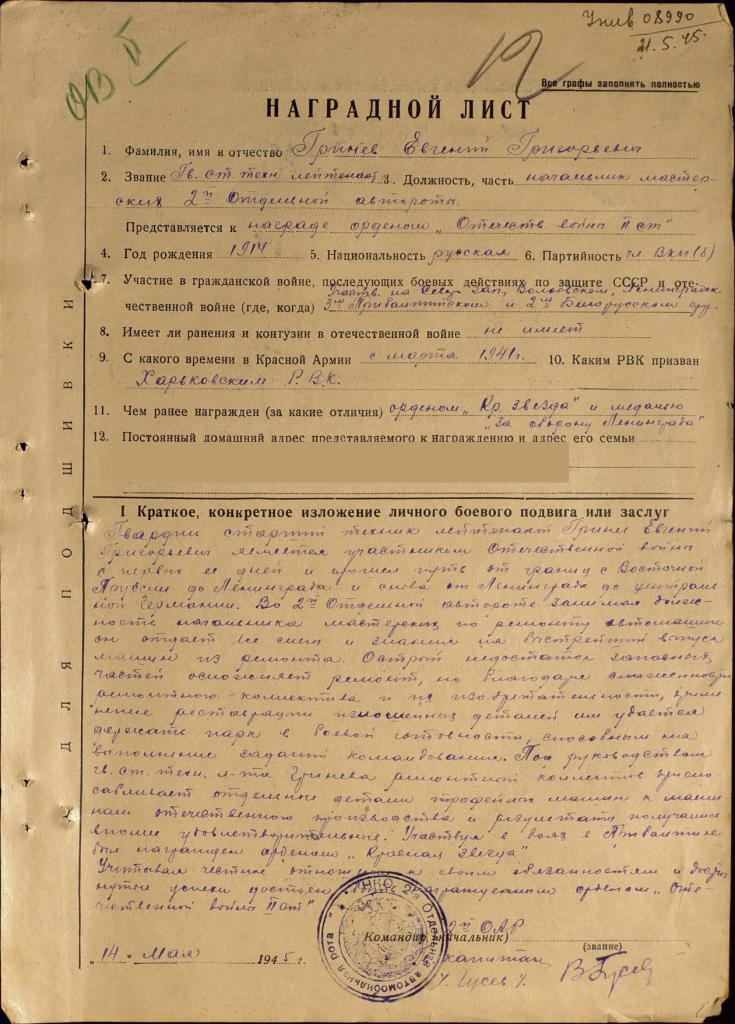 Унив 08990
21.5.45
ОВ II
12
Все графы заполнять полностью
НАГРАДНОЙ ЛИСТ
1. Фамилия, имя и отчество Гринев Евгений Григорьевич
2. Звание Гв. ст. техн. лейтенант 3. Должность, часть начальник мастер-
ских 2й Отдельной автороты.
Представляется к награде орденом „Отечеств. войны II ст"
4. Год рождения 1914 5. Национальность русская 6. Партийность чл ВКП(б)
7. Участие в гражданской войне, последующих боевых действиях по защите СССР и оте-
чественной войне (где, когда) Участв. на Север. Зап., Волховском, Ленинградск.
3м Прибалтийском и 2м Белорусском фр.
8. Имеет ли ранения и контузии в отечественной войне не имеет
9. С какого времени в Красной Армии с марта 1941г. 10. Каким РВК призван
Харьковским Р.В.К.
11. Чем ранее награжден (за какие отличия) орденом „Кр. звезда" и медалью
„За оборону Ленинграда"
12. Постоянный домашний адрес представляемого к награждению и адрес его семьи
ДЛЯ ПОДШИВКИ
I Краткое, конкретное изложение личного боевого подвига или заслуг
Гвардии старший техник лейтенант Гринев Евгений
Григорьевич является участником Отечественной войны
с первых ее дней и прошел путь от границ с Восточной
Пруссии до Ленинграда и снова от Ленинграда до централь-
ной Германии. Во 2й Отдельной автороте занимая долж-
ность начальника мастерских по ремонту автомашин
он отдает все силы и знания на быстрейший выпуск
машин из ремонта. Острый недостаток запасных
частей осложняет ремонт, но благодаря слаженности
ремонтного коллектива и их изобретательности, приме-
нение реставрации изношенных деталей им удается
держать парк в боевой готовности, способным на
выполнение заданий командования. Под руководством
гв. ст. техн. л-та Гринева ремонтный коллектив приспо-
сабливает отдельные детали трофейных машин к маши-
нам отечественного производства и результаты получаются
вполне удовлетворительные. Участвуя в боях в Прибалтике
был награжден орденом „Красная звезда"
Учитывая честное отношение к своим обязанностям и достиг-
нутые успехи достоин награждения орденом „Оте-
чественной войны II ст"
Командир (начальник) 2й ОАР
(звание)
капитан
/Гусев/ ВГусев
"14" Мая 1945 г.
НКО 2я Отдельная автомобильная рота